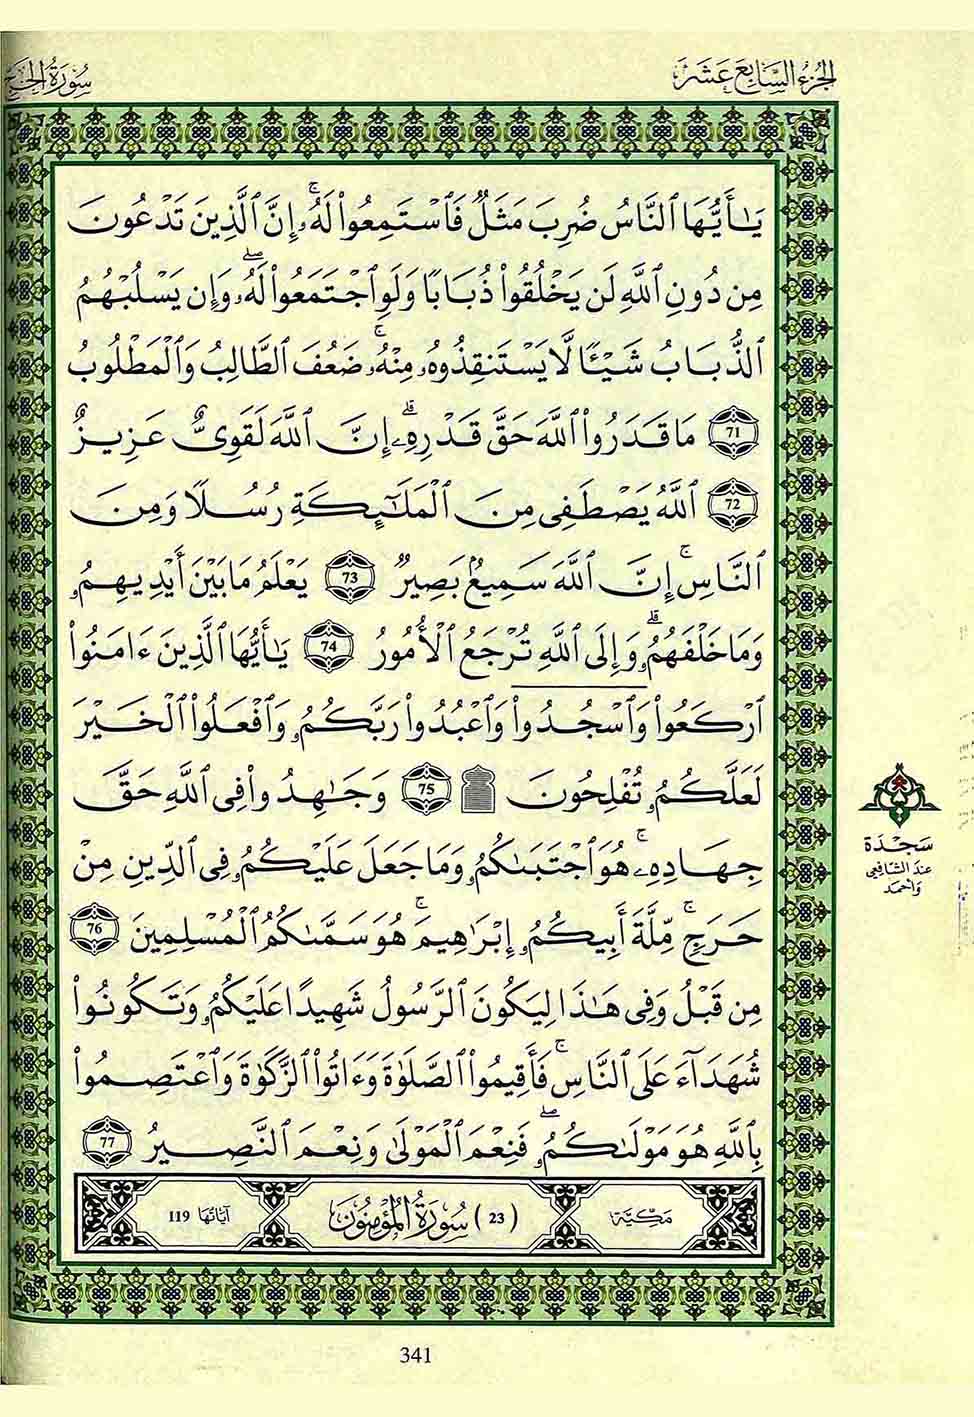 الجزء السابع عشر
سورة الحج
يَٰأَيُّهَا اَ۬لنَّاسُ ضُرِبَ مَثَلٌ فَاَسْتَمِعُواْ لَهُۥ إِنَّ اَ۬لَّذِينَ تَدْعُونَ
مِن دُونِ اِ۬للَّهِ لَن يَخْلُقُواْ ذُبَابًا وَلَوِ اِ۪جْتَمَعُواْ لَهُۥ وَإِن يَسْلُبْهُمُ
اُ۬لذُّبَابُ شَيْـًٔا لَّا يَسْتَنقِذُوهُۥ مِنْهُۥ ضَعُفَ اَ۬لطَّالِبُ وَالْمَطْلُوبُ
71 مَا قَدَرُواْ اُ۬للَّهَ حَقَّ قَدْرِهِۦ إِنَّ اَ۬للَّهَ لَقَوِيٌّ عَزِيزٌ
72 اَ۬للَّهُ يَصْطَفِى مِنَ اَ۬لْمَلَٰٓئِكَةِ رُسُلًا وَمِنَ
اَ۬لنَّاسِ إِنَّ اَ۬للَّهَ سَمِيعٌۢ بَصِيرٌ 73 يَعْلَمُ مَا بَيْنَ أَيْدِيهِمُۥ
وَمَا خَلْفَهُمُۥ وَإِلَى اَ۬للَّهِ تُرْجَعُ اُ۬لْأُمُورُ 74 يَٰأَيُّهَا اَ۬لَّذِينَ ءَامَنُواْ
اُ۪رْكَعُواْ وَاسْجُدُواْ وَاعْبُدُواْ رَبَّكُمُۥ وَافْعَلُواْ اُ۬لْخَيْرَ
لَعَلَّكُمُۥ تُفْلِحُونَ 75 وَجَٰهِدُواْ فِى اِ۬للَّهِ حَقَّ
جِهَادِهِۦ هُوَ اَ۪جْتَبَىٰكُمُۥ وَمَا جَعَلَ عَلَيْكُمُۥ فِى اِ۬لدِّينِ مِنْ
حَرَجٍ مِّلَّةَ أَبِيكُمُۥ إِبْرَٰهِيمَ هُوَ سَمَّىٰكُمُ اُ۬لْمُسْلِمِينَ 76
مِن قَبْلُ وَفِى هَٰذَا لِيَكُونَ اَ۬لرَّسُولُ شَهِيدًا عَلَيْكُمُۥ وَتَكُونُواْ
شُهَدَآءَ عَلَى اَ۬لنَّاسِ فَأَقِيمُواْ اُ۬لصَّلَوٰةَ وَءَاتُواْ اُ۬لزَّكَوٰةَ وَاعْتَصِمُواْ
بِاللَّهِ هُوَ مَوْلَىٰكُمُۥ فَنِعْمَ اَ۬لْمَوْلَىٰ وَنِعْمَ اَ۬لنَّصِيرُ 77
سَجْدَة
عند الشافعي
وأحمد
مكيّة (23) سورة المؤمنون آياتها 119
341